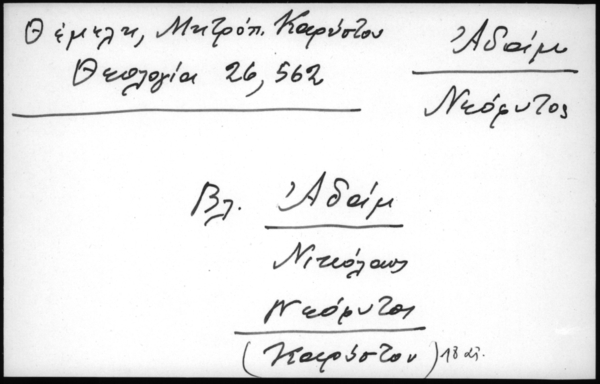 Θέμελη, Μητρόπ. Καρύστου
Θεολογία 26, 562
Ἀδάμ
Νεόφυτος
Βλ. Ἀδάμ
Νικόλαος
Νεόφυτος
(Καρύστου) 18 αἰ.